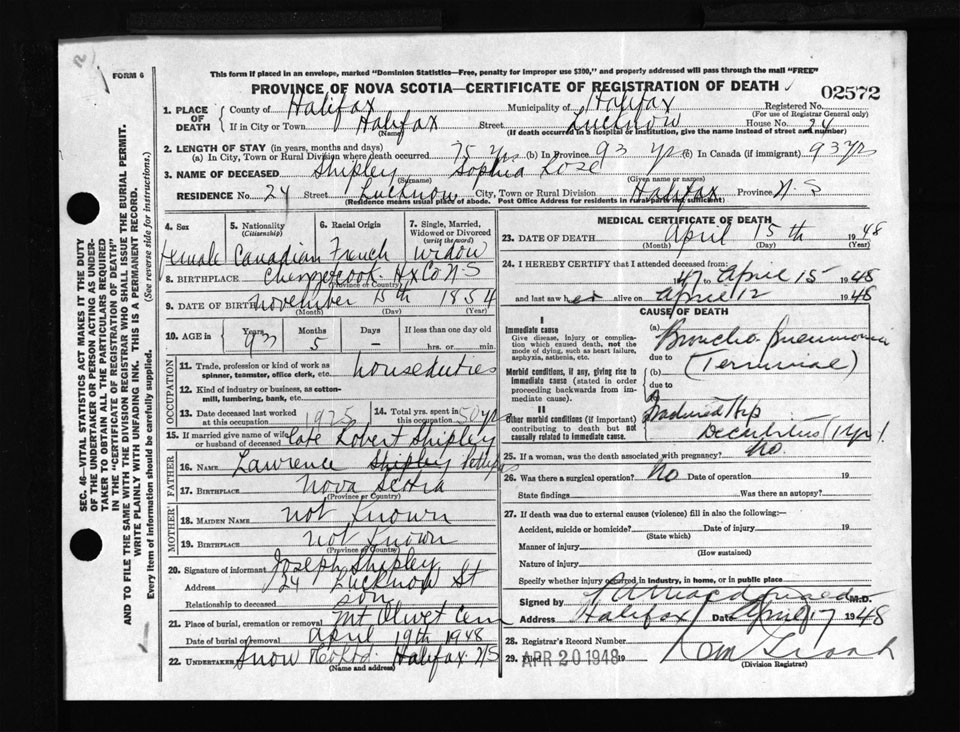 FORM 6
This form if placed in an envelope, marked "Dominion Statistics—Free, penalty for improper use $300," and properly addressed will pass through the mail "FREE"
PROVINCE OF NOVA SCOTIA—CERTIFICATE OF REGISTRATION OF DEATH
02572
1. PLACE OF DEATH County of Halifax Municipality of Halifax Registered No.
(For use of Registrar General only)
If in City or Town Halifax Street Lucknow House No. 24
(Name) (If death occurred in a hospital or institution, give the name instead of street and number)
2. LENGTH OF STAY (in years, months and days)
(a) In City, Town or Rural Division where death occurred 75 yrs (b) in Province 93 yrs (c) In Canada (if immigrant) 93 yrs
3. NAME OF DECEASED Shipley Sophia Rose
(Surname) (Given name or names)
RESIDENCE No. 24 Street Lucknow City, Town or Rural Division Halifax Province N.S
(Residence means usual place of abode. Post Office Address for residents in rural parts not sufficient)
4. Sex 5. Nationality (Citizenship) 6. Racial Origin 7. Single, Married, Widowed or Divorced (write the word)
Female Canadian French Widow
8. BIRTHPLACE Chezzetcook Hx Co N S
(Province or Country)
9. DATE OF BIRTH November 15th 1854
(Month) (Day) (Year)
10. AGE in Years Months Days If less than one day old
93 5 – hrs. or min.
OCCUPATION
11. Trade, profession or kind of work as spinner, teamster, office clerk, etc. houseduties
12. Kind of industry or business, as cotton-mill, lumbering, bank, etc.
13. Date deceased last worked at this occupation 1925 14. Total yrs. spent in this occupation 50 yrs
15. If married give name of wife or husband of deceased late Robert Shipley
FATHER
16. NAME Lawrence Shipley
17. BIRTHPLACE Nova Scotia
(Province or Country)
MOTHER
18. MAIDEN NAME not known
19. BIRTHPLACE not known
(Province or Country)
20. Signature of informant Joseph Shipley
Address 24 Lucknow St
Relationship to deceased son
21. Place of burial, cremation or removal Mt Olivet Cem
Date of burial or removal April 19th 1948
22. UNDERTAKER Snow & Co Ltd. Halifax N.S
(Name and address)
MEDICAL CERTIFICATE OF DEATH
23. DATE OF DEATH April 15th 1948
(Month) (Day) (Year)
24. I HEREBY CERTIFY that I attended deceased from:
47 to April 15 1948
and last saw her alive on April 12 1948
CAUSE OF DEATH
I
Immediate cause
Give disease, injury or complication which caused death, not the mode of dying, such as heart failure, asphyxia, asthenia, etc.
(a) Broncho Pneumonia
due to (Terminal)
Morbid conditions, if any, giving rise to immediate cause (stated in order proceeding backwards from immediate cause).
(b)
due to
(c)
II
Other morbid conditions (if important) contributing to death but not causally related to immediate cause.
Fractured Hip
Decubitus (1 yr)
25. If a woman, was the death associated with pregnancy? no.
26. Was there a surgical operation? No Date of operation 19
State findings Was there an autopsy?
27. If death was due to external causes (violence) fill in also the following:—
Accident, suicide or homicide? Date of injury 19
(State which)
Manner of injury
(How sustained)
Nature of injury
Specify whether injury occurred in industry, in home, or in public place
Signed by Macdonald M.D.
Halifax Date April 17 1948
28. Registrar's Record Number
29. Filed APR 20 1948 19
(Division Registrar)
SEC. 46—VITAL STATISTICS ACT MAKES IT THE DUTY OF THE UNDERTAKER OR PERSON ACTING AS UNDERTAKER TO OBTAIN ALL THE PARTICULARS REQUIRED IN THE "CERTIFICATE OF REGISTRATION OF DEATH" AND TO FILE THE SAME WITH THE DIVISION REGISTRAR WHO SHALL ISSUE THE BURIAL PERMIT.
WRITE PLAINLY WITH UNFADING INK. THIS IS A PERMANENT RECORD.
Every item of information should be carefully supplied. (See reverse side for instructions.)